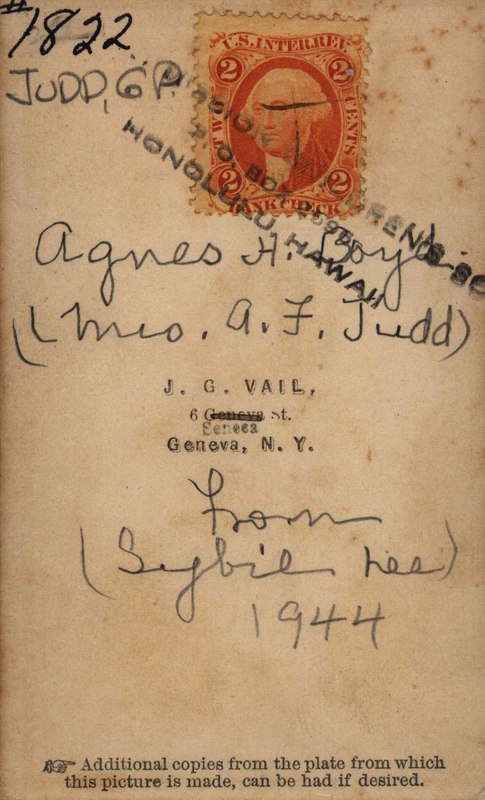 #1822
JUDD, GP.
U.S. INTER. REV.
2 2
TWO CENTS
2 2
BANK CHECK
MISSION CHILDREN'S SO
P.O. BOX
HONOLULU, HAWAII
Agnes H. Boyd
(Mrs. A. F. Judd)
J. G. VAIL,
6 Geneva St.
Seneca
Geneva, N. Y.
from
(Sybil Lee)
1944
Additional copies from the plate from which
this picture is made, can be had if desired.